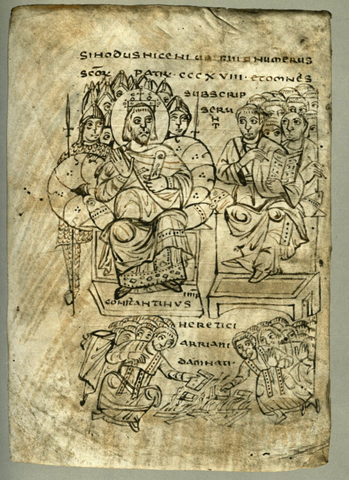 SINODUS NICENI UBI NUMERUS
SCOR PATR · CCCXVIII · ET OMNES
SUBSCRIP
SERU
NT
CONSTANTINUS IMP
HERETICI
ARRIANI
DAMNATI